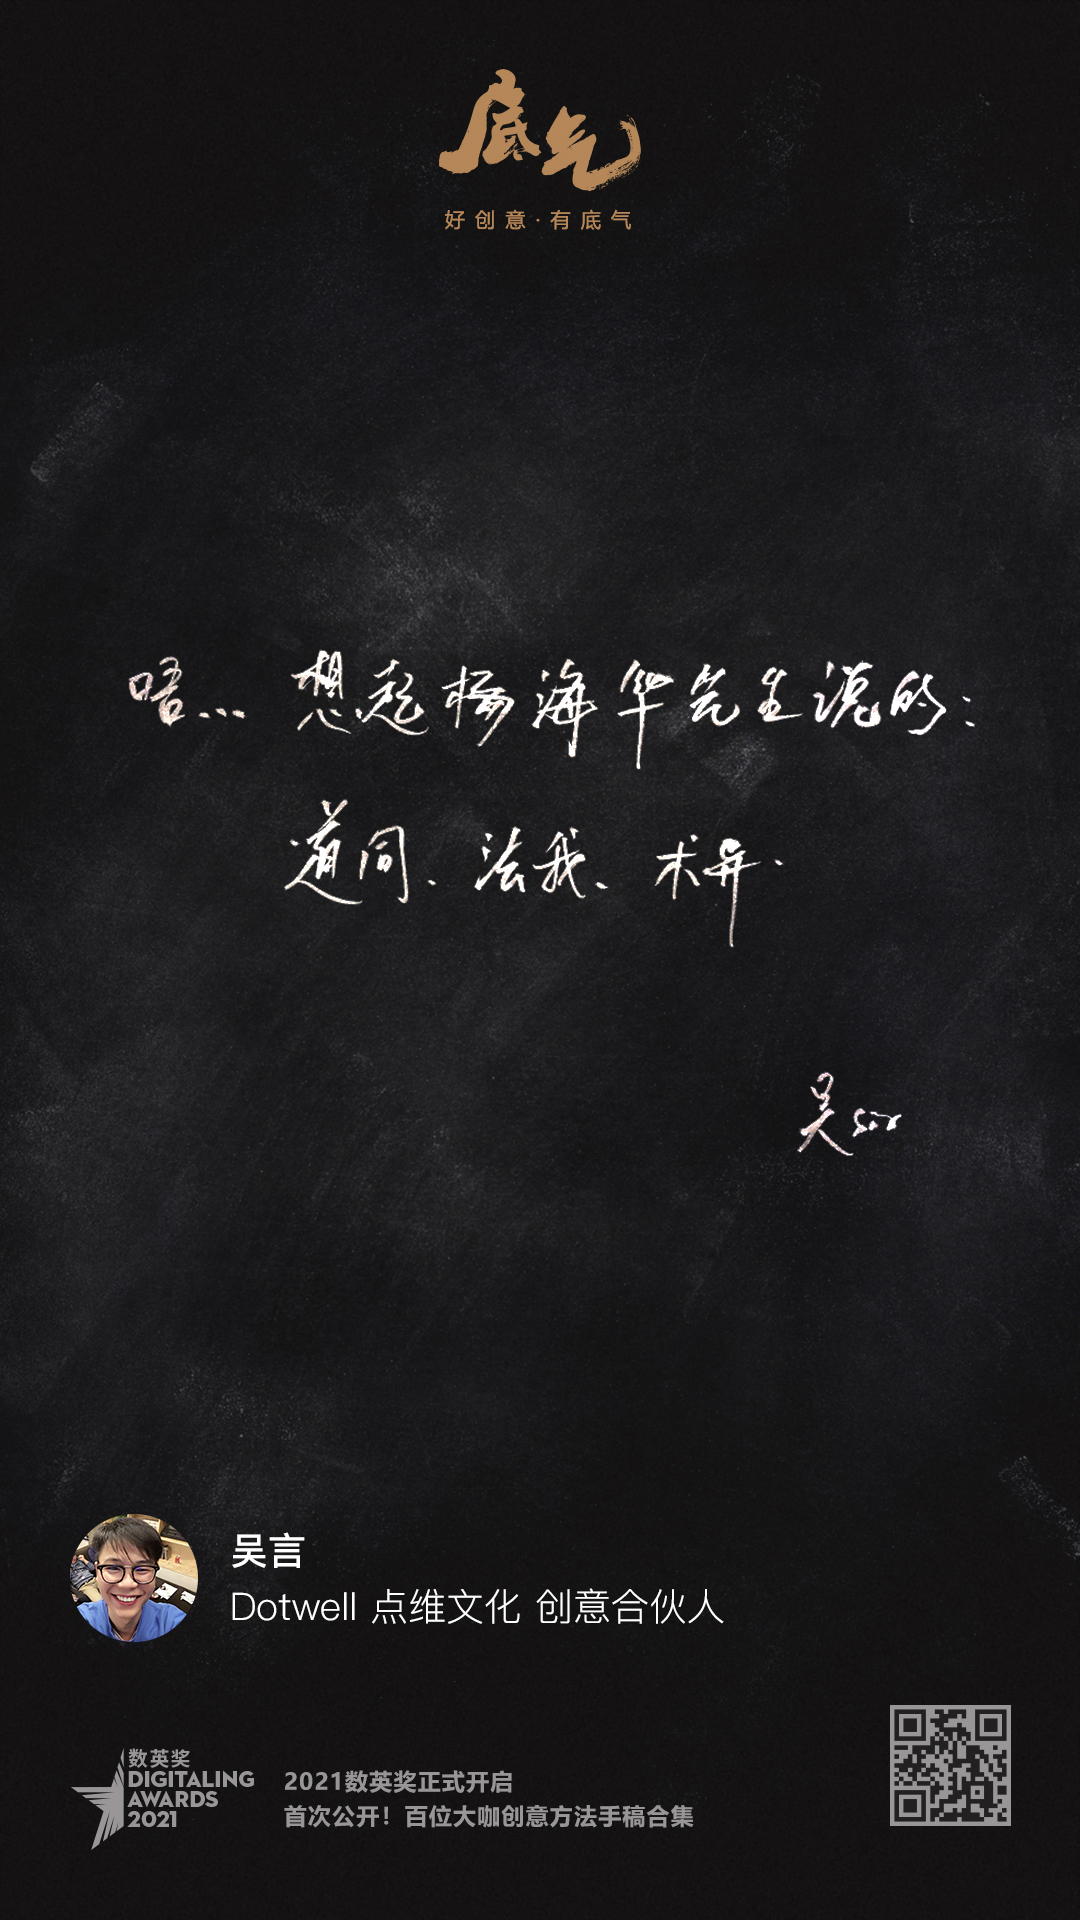 底气
好创意·有底气
唔... 想起杨海华先生说的:
道同、法我、术异.
吴sir
吴言
Dotwell 点维文化 创意合伙人
数英奖
DIGITALING
AWARDS
2021
2021数英奖正式开启
首次公开！百位大咖创意方法手稿合集